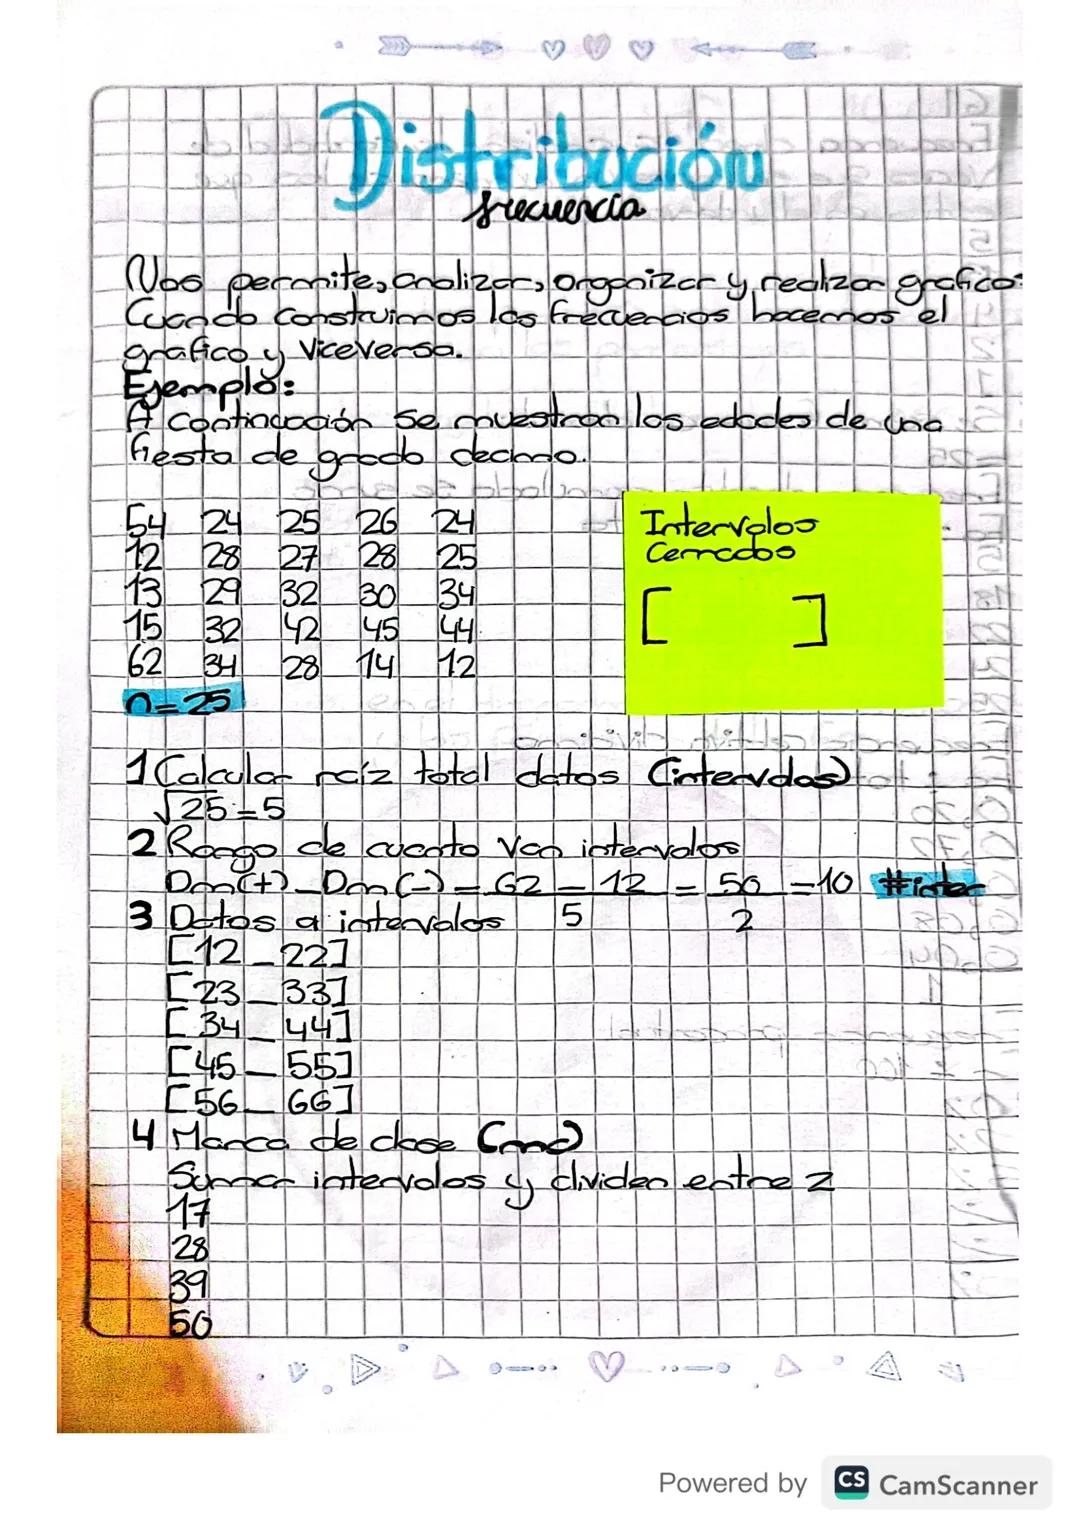 Distribución
frecuencia
Nos permite, analizar, organizar y realizar grafico
Cuando construimos las frecuencias hacemos el
grafico y viceversa.
Ejemplo:
A continuación se muestran las edades de una
fiesta de grado decimo.
54 24 25 26 24
12 28 27 28 25
13 29 32 30 34
15 32 42 45 44
62 34 28 14 12
n=25
Intervalos
Cerrados
[ ]
1 Calcular raíz total datos (intervalos)
√25=5
2 Rango de cuanto van intervalos
Dm(+)_Dm(-)= 62 - 12 = 50 =10 #inter
5 2
3 Datos a intervalos
[12_22]
[23_33]
[34_44]
[45_55]
[56_66]
4 Marca de clase (mc)
Sumar intervalos y dividen entre 2
17
28
39
50
Powered by CS CamScanner